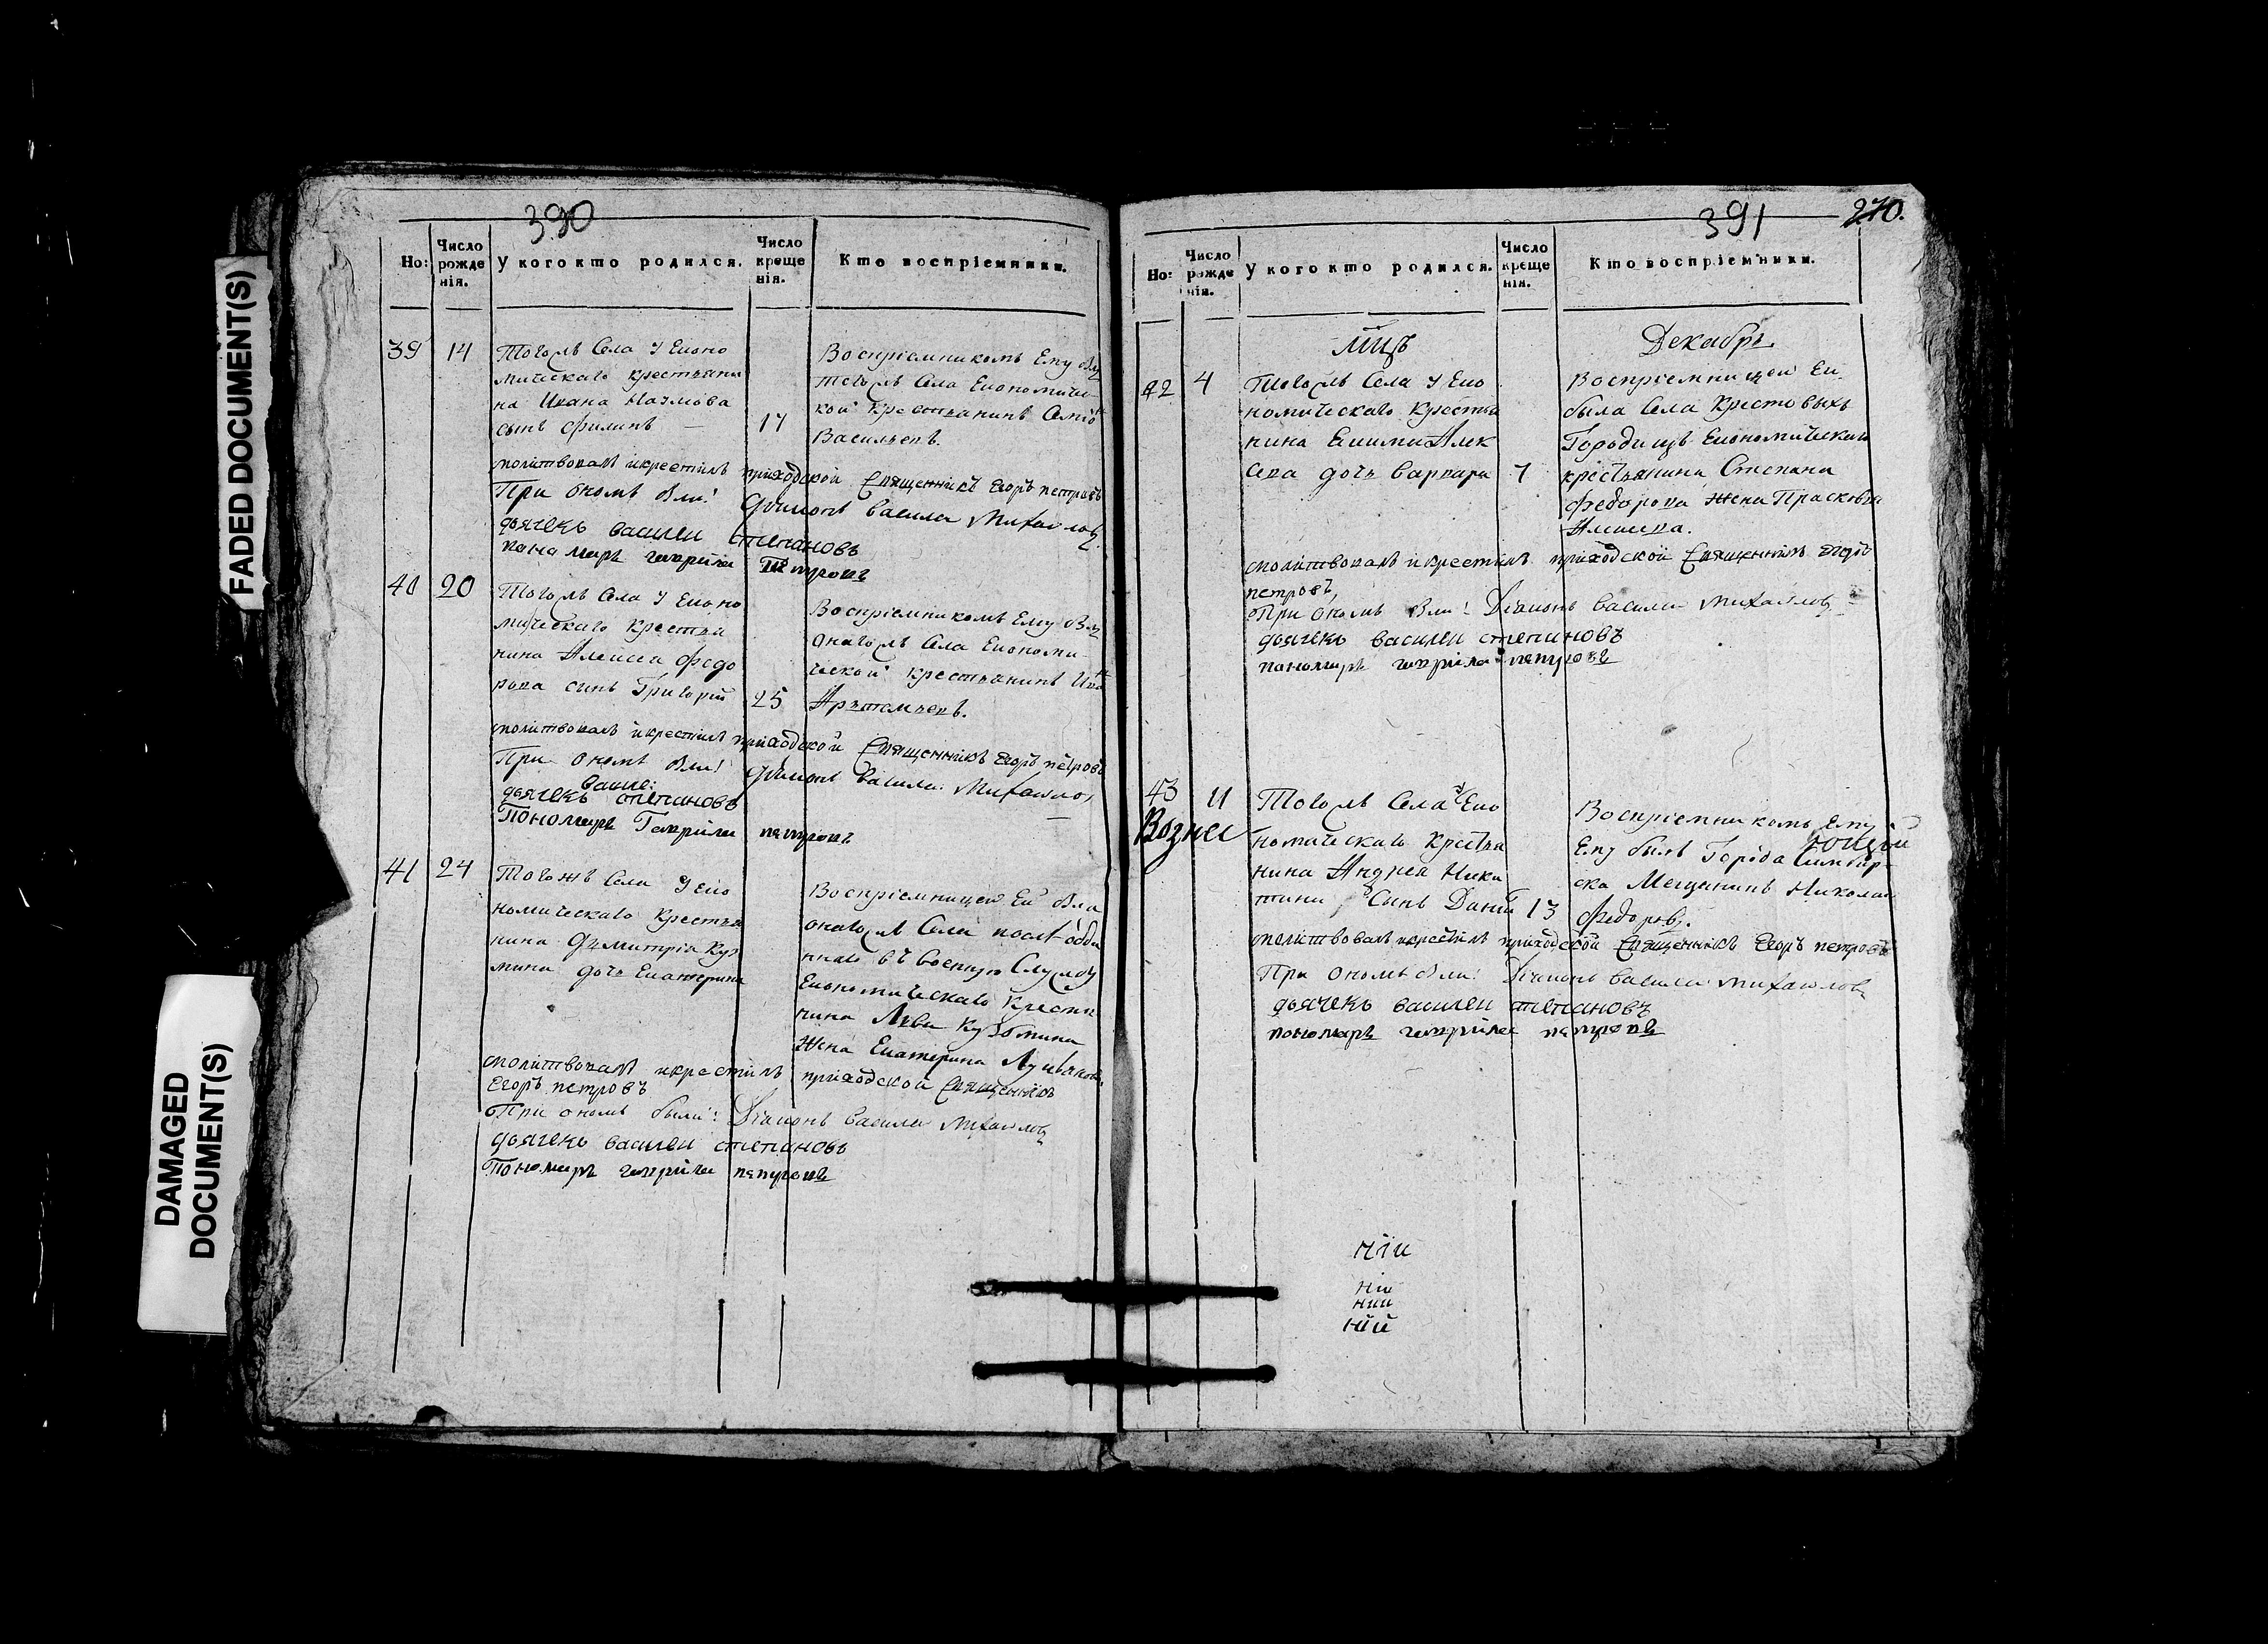 FADED DOCUMENT(S)
DAMAGED
DOCUMENT(S)
390
Но:
Число рожде нія.
У кого кто родился.
Число креще нія.
Кто воспріемники.
39 14
Тогожъ Села У Еконо
мическаго крестьяни
на Ивана Наумова
сынъ Филипъ —
17
Воспріемникомъ Ему
тогожъ Села Економиче
кой крестьянинъ
Васильевъ.
молитвовалъ икрестилъ приходской Священникъ Егоръ петровъ
При ономъ Были: Діаконъ Василей Михайловъ
дьячекъ василеи степановъ
панамарь гаврила петровъ
40 20
Тогожъ Села У Еконо
мическаго Крестья
нина Алексея Федо
рова сынъ Григорий
25
Воспріемникомъ Ему
оногожъ Села Економи
ческой крестьянинъ
Артемьевъ.
молитвовалъ икрестилъ приходской Священникъ Егоръ петровъ
При ономъ Были: Діаконъ Василей Михайло
васие:
дьячекъ степановъ
Пономарь Гаврила петровъ
41 24
Тогожъ Села У Еко
номическаго Крестья
нина Димитрія Куз
мина дочь Екатерина
Воспріемницей Ей Была
оногожъ Села
въ военную Службу
Економическаго Крестья
нина Лва Кузмина
Жена Екатерина
молитвовалъ икрестилъ приходской Священникъ
Егоръ петровъ
При ономъ были: Діаконъ Василей Михайловъ
дьячекъ василеи степановъ
Пономарь гаврила петровъ
391
270.
Но:
Число рожде нія.
У кого кто родился.
Число креще нія.
Кто воспріемники.
Мцъ Декабрь
42 4
Тогожъ Села У Еко
номическаго Крестья
нина Екима Алек
сева дочь варвара
7
Воспріемницей Ей
была Села Крестовыхъ
Городищъ Економическаго
крестьянина Степана
федорова жена Прасковья
Алексева.
молитвовалъ икрестилъ приходской Священникъ Егоръ
петровъ,
При ономъ Были: Діаконъ Василей Михайловъ
дьячекъ василеи степановъ
пономарь гаврила петровъ
43 11
Вознес
Тогожъ Села У Еко
номическаго Крестья
нина Андрея Ники
тина Сынъ Данiй
13
Воспріемникомъ Ему
Ему былъ Города Симбир-
ска Мещанинъ Николай
Федоровъ.
молитвовалъ икрестилъ приходской Священникъ Егоръ петровъ
При ономъ Были: Діаконъ Василей Михайловъ
дьячекъ василеи степановъ
пономарь гаврила петровъ
нїи
ній
нии
нїй